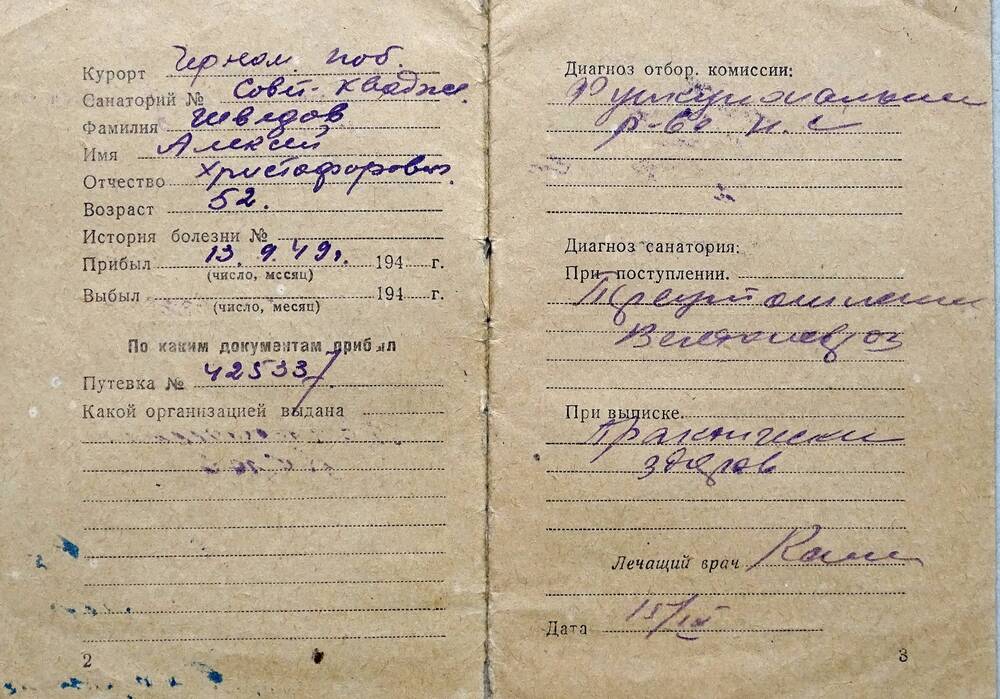 Курорт Черном. поб.
Санаторий № Совет-Квадже
Фамилия Шведов
Имя Алексей
Отчество Христофорович
Возраст 52.
История болезни №
Прибыл 13. 9. 49г. 194 г.
(число, месяц)
Выбыл 194 г.
(число, месяц)
По каким документам прибыл
Путевка № 42533
Какой организацией выдана
2
Диагноз отбор. комиссии:
Функциональн
р-во н. с
Диагноз санатория:
При поступлении.
При выписке.
Практически
здоров
Лечащий врач
Дата 15/IX
3